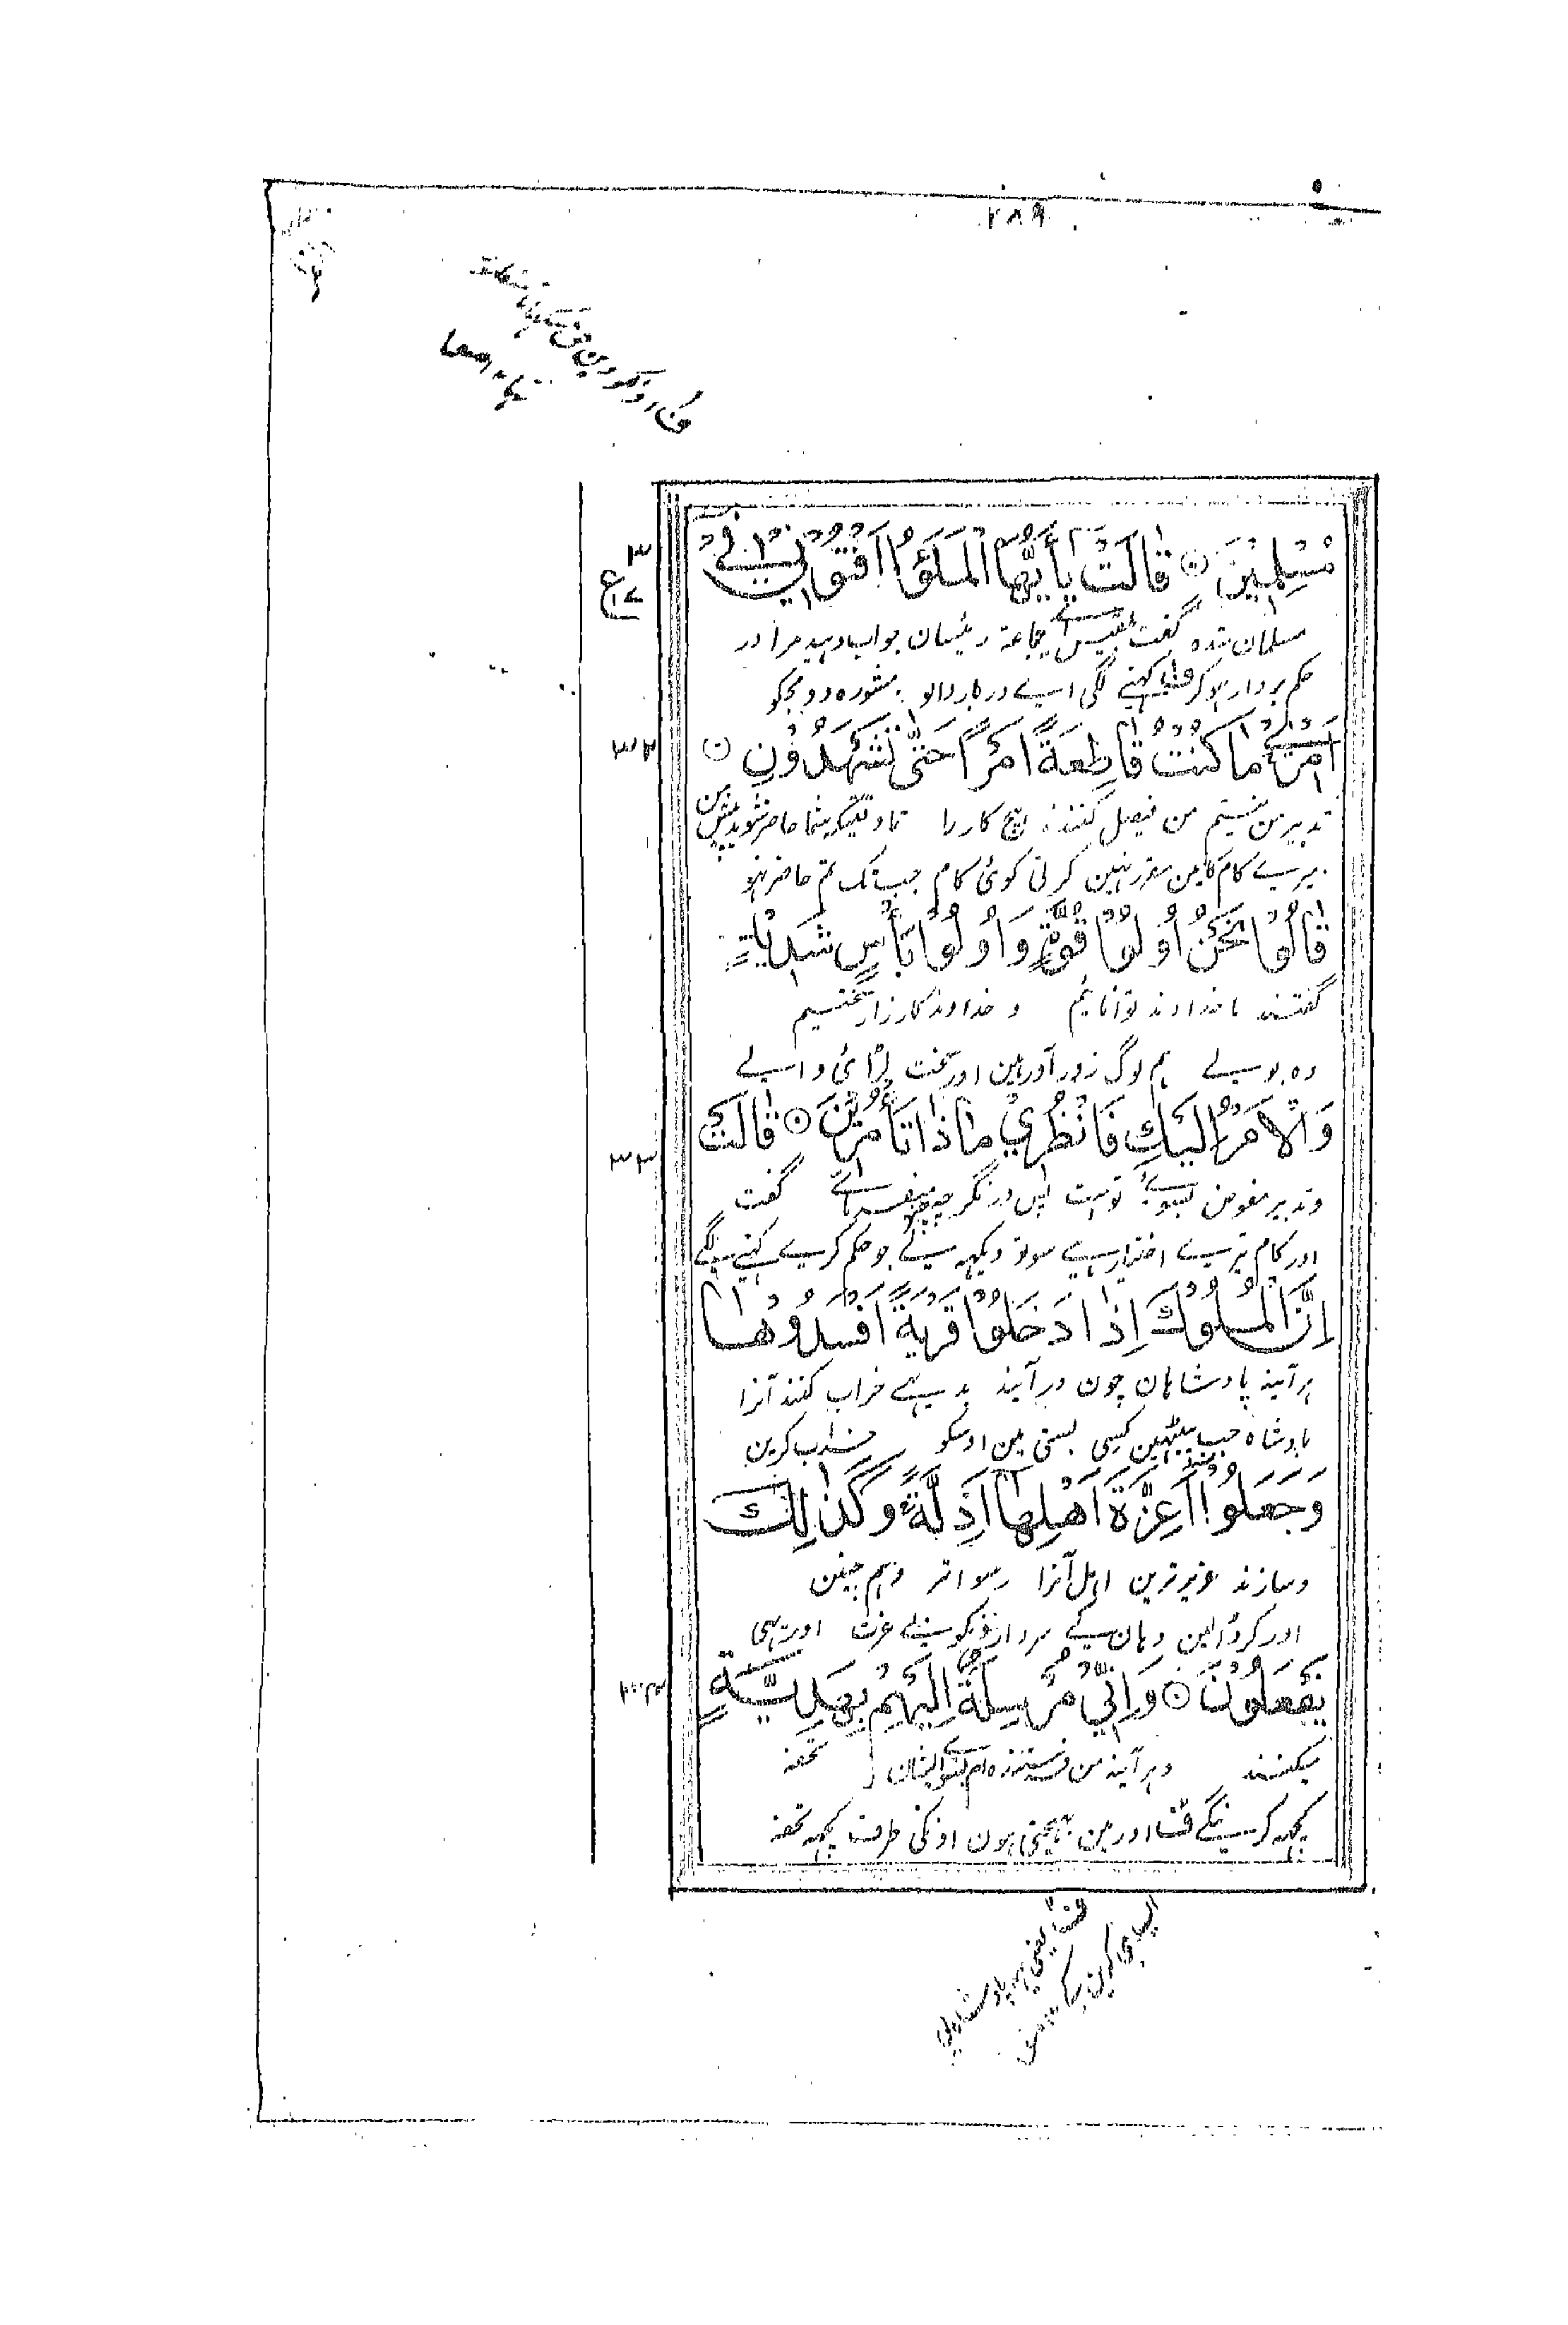 ٢٨٩
مُسْلِمِيْنَ ۝ قَالَتْ يٰۤاَيُّهَا الْمَلَؤُا اَفْتُوْنِيْ فِيْۤ
مسلمان شده گفت بلقیس اے جماعۀ رئیسان جواب دہید مرا در
حکم بردار ہوکر کہنے لگی اے دربار والو مشورہ دو مجکو
اَمْرِيْ مَا كُنْتُ قَاطِعَةً اَمْرًا حَتّٰى تَشْهَدُوْنِ ۝
٣٢
تدبیر من نیستم من فیصل کنندہ ہیچ کار را تا وقتیکہ شما حاضر شوید پیش من
میرے کام کا مین مقرر نہین کرتی کوئی کام جب تک تم حاضر نہو
قَالُوْا نَحْنُ اُولُوْا قُوَّةٍ وَّاُولُوْا بَاْسٍ شَدِيْدٍ
گفتند ما خداوند توانائیم و خداوند کارزار سختیم
وہ بولے ہم لوگ زور آور ہین اور سخت لڑائی والے
وَّالْاَمْرُ اِلَيْكِ فَانْظُرِيْ مَاذَا تَاْمُرِيْنَ ۝ قَالَتْ
٣٣
و تدبیر مفوض بسوے تو است پس در نگر چہ میفرمائے گفت
اور کام تیرے اختیار ہے سو تو دیکہہ لے جو حکم کرے کہنے لگے
اِنَّ الْمُلُوْكَ اِذَا دَخَلُوْا قَرْيَةً اَفْسَدُوْهَا
ہر آینہ پادشاہان چون در آیند بدیہے خراب کنند آنرا
بادشاہ جب پیٹہین کسی بستی مین اوسکو خراب کرین
وَجَعَلُوْۤا اَعِزَّةَ اَهْلِهَاۤ اَذِلَّةً وَكَذٰلِكَ
و سازند عزیز ترین اہل آنرا رسواتر و ہم چنین
اور کر ڈالین وہان کے سردارونکو بے عزت اور یہی
يَفْعَلُوْنَ ۝ وَاِنِّيْ مُرْسِلَةٌ اِلَيْهِمْ بِهَدِيَّةٍ
٣٤
میکنند و ہر آینہ من فرستندہ ام بسوے ایشان تحفہ
کچہہ کرینگے ف اور مین بہیجتی ہون اونکی طرف کچہہ تحفہ